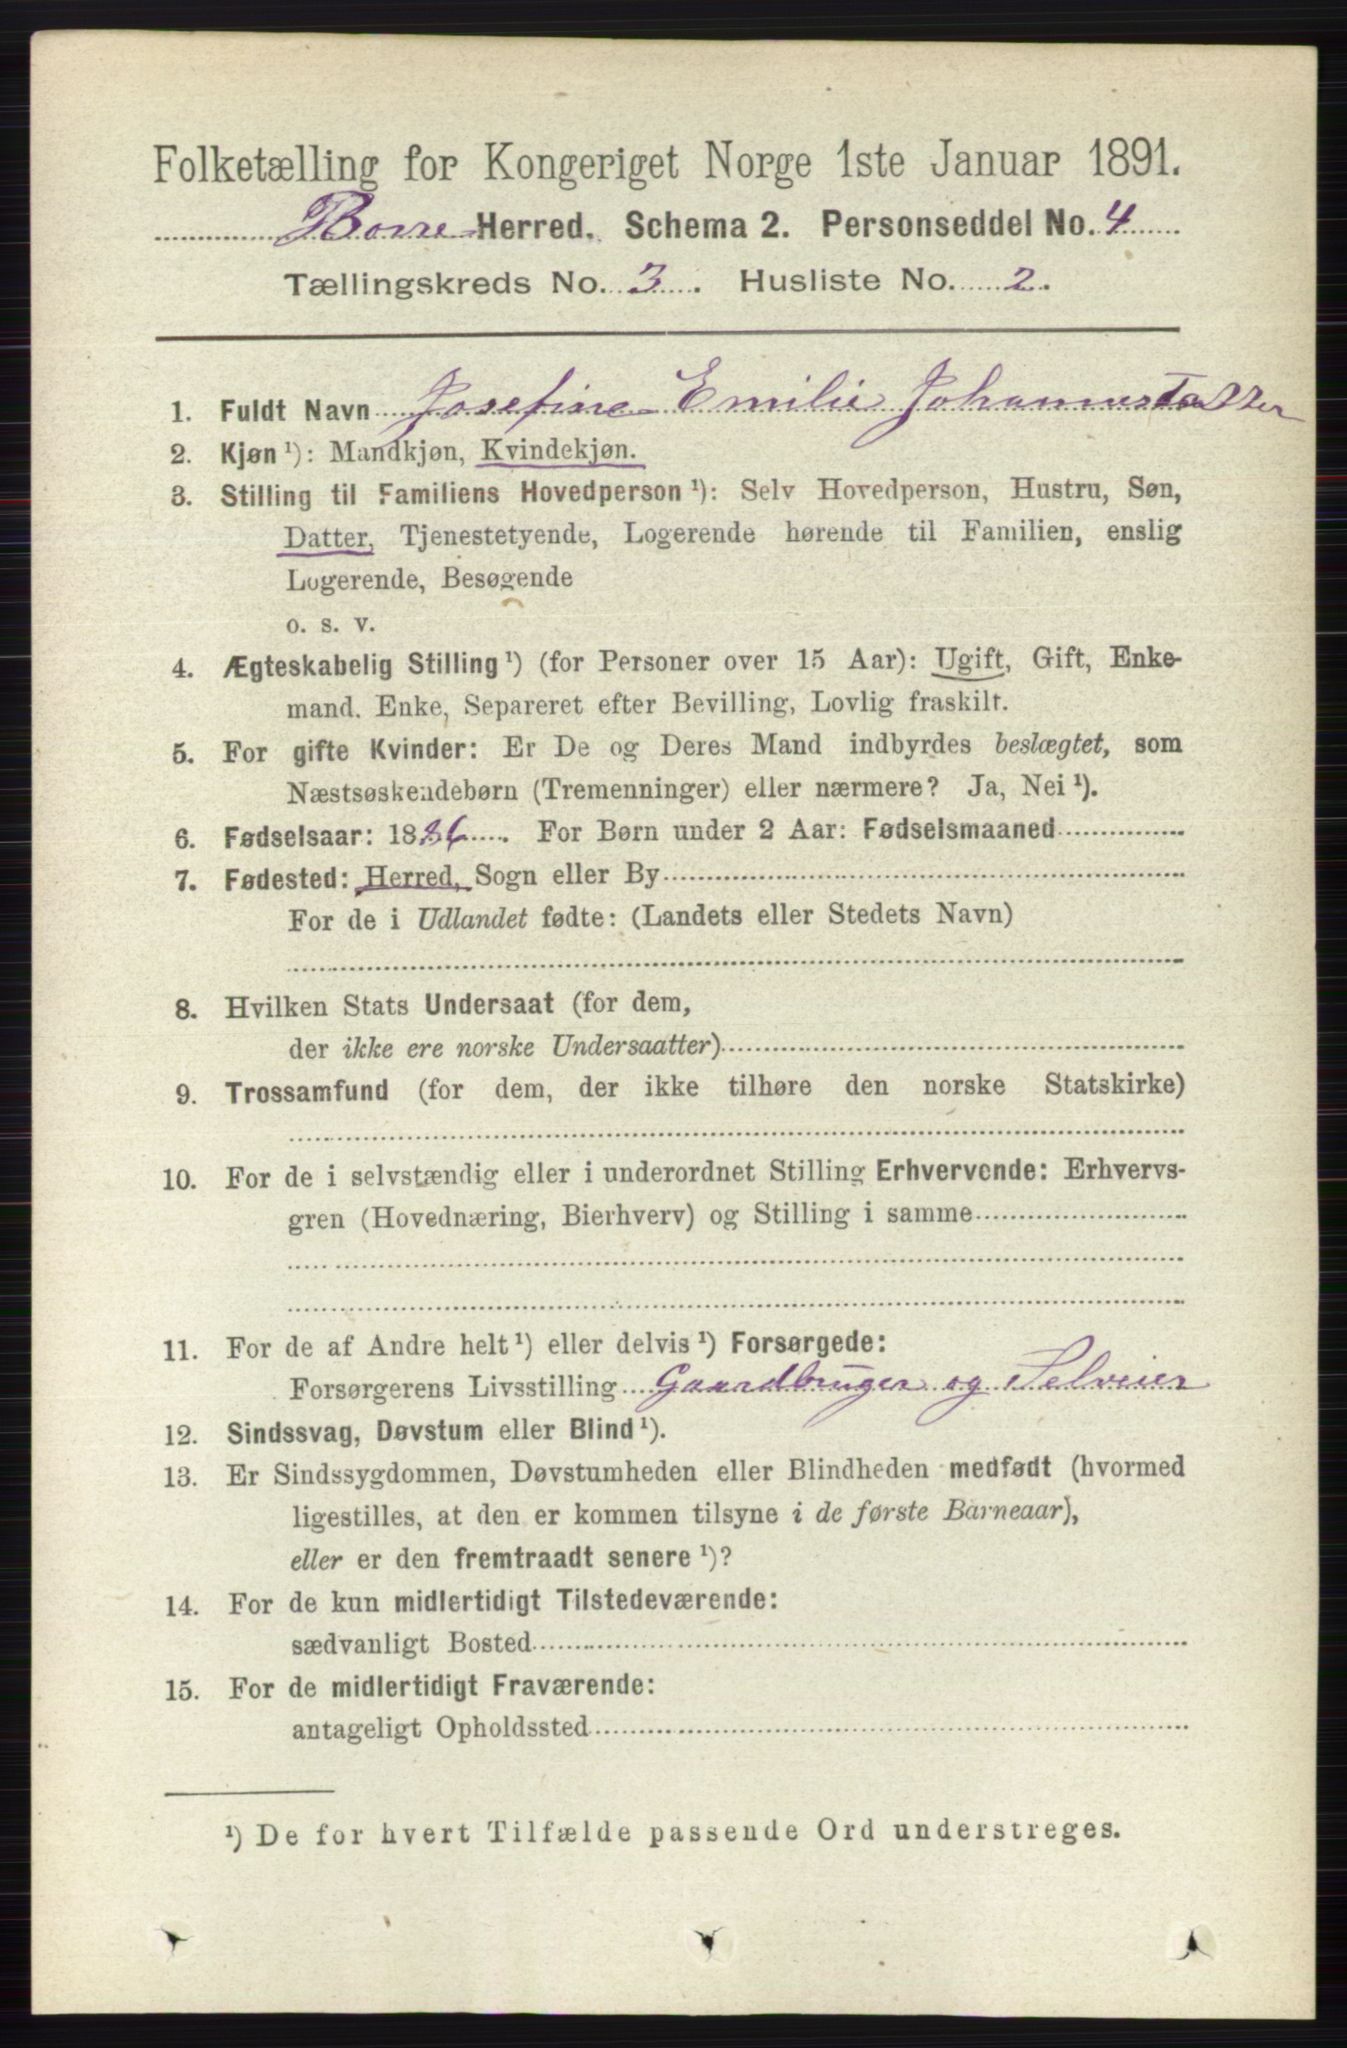 Folketælling for Kongeriget Norge 1ste Januar 1891.
Borre Herred. Schema 2. Personseddel No. 4
Tællingskreds No. 3. Husliste No. 2.
1. Fuldt Navn Josefine Emilie Johannesdatter
2. Kjøn ¹): Mandkjøn, Kvindekjøn.
3. Stilling til Familiens Hovedperson ¹): Selv Hovedperson, Hustru, Søn,
Datter, Tjenestetyende, Logerende hørende til Familien, enslig
Logerende, Besøgende
o. s. v.
4. Ægteskabelig Stilling ¹) (for Personer over 15 Aar): Ugift, Gift, Enke-
mand, Enke, Separeret efter Bevilling, Lovlig fraskilt.
5. For gifte Kvinder: Er De og Deres Mand indbyrdes beslægtet, som
Næstsøskendebørn (Tremenninger) eller nærmere? Ja, Nei ¹).
6. Fødselsaar: 1886. For Børn under 2 Aar: Fødselsmaaned
7. Fødested: Herred, Sogn eller By
For de i Udlandet fødte: (Landets eller Stedets Navn)
8. Hvilken Stats Undersaat (for dem,
der ikke ere norske Undersaatter)
9. Trossamfund (for dem, der ikke tilhøre den norske Statskirke)
10. For de i selvstændig eller i underordnet Stilling Erhvervende: Erhvervs-
gren (Hovednæring, Bierhverv) og Stilling i samme
11. For de af Andre helt ¹) eller delvis ¹) Forsørgede:
Forsørgerens Livsstilling Gaardbruger og Selveier
12. Sindssvag, Døvstum eller Blind ¹).
13. Er Sindssygdommen, Døvstumheden eller Blindheden medfødt (hvormed
ligestilles, at den er kommen tilsyne i de første Barneaar),
eller er den fremtraadt senere ¹)?
14. For de kun midlertidigt Tilstedeværende:
sædvanligt Bosted
15. For de midlertidigt Fraværende:
antageligt Opholdssted
¹) De for hvert Tilfælde passende Ord understreges.